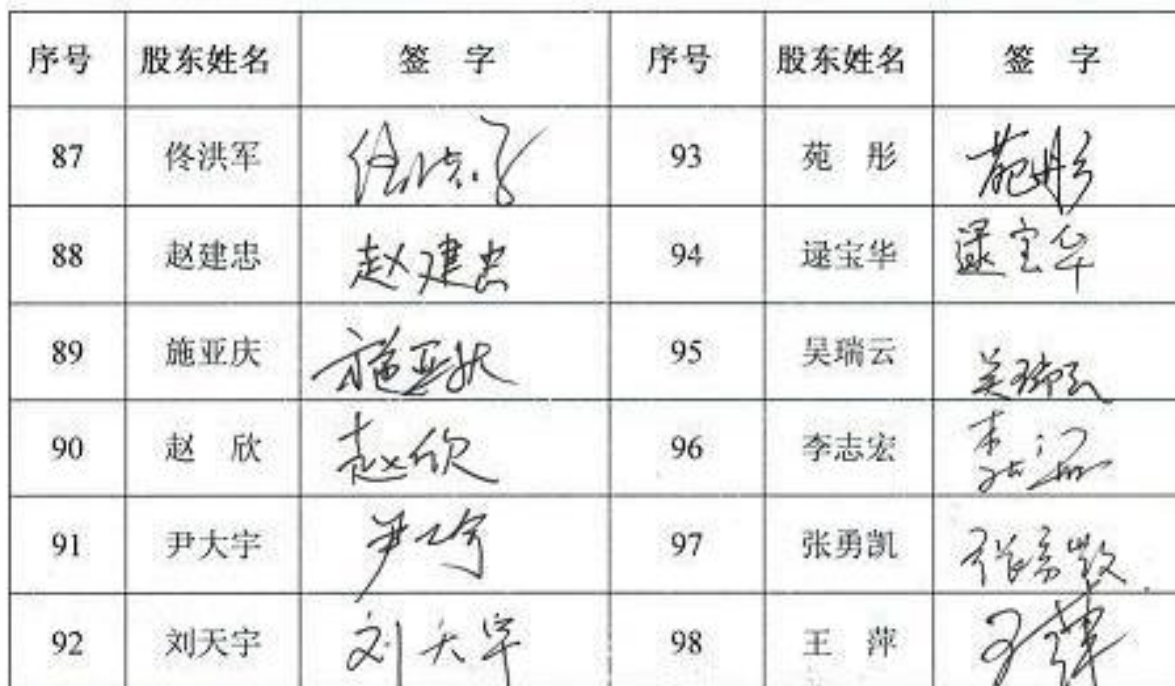 序号 股东姓名 签 字 序号 股东姓名 签 字
87 佟洪军 佟洪军 93 苑 彤 苑彤
88 赵建忠 赵建忠 94 逯宝华 逯宝华
89 施亚庆 施亚庆 95 吴瑞云 吴瑞云
90 赵 欣 赵欣 96 李志宏 李志宏
91 尹大宇 尹大宇 97 张勇凯 张勇凯
92 刘天宇 刘天宇 98 王 萍 王萍